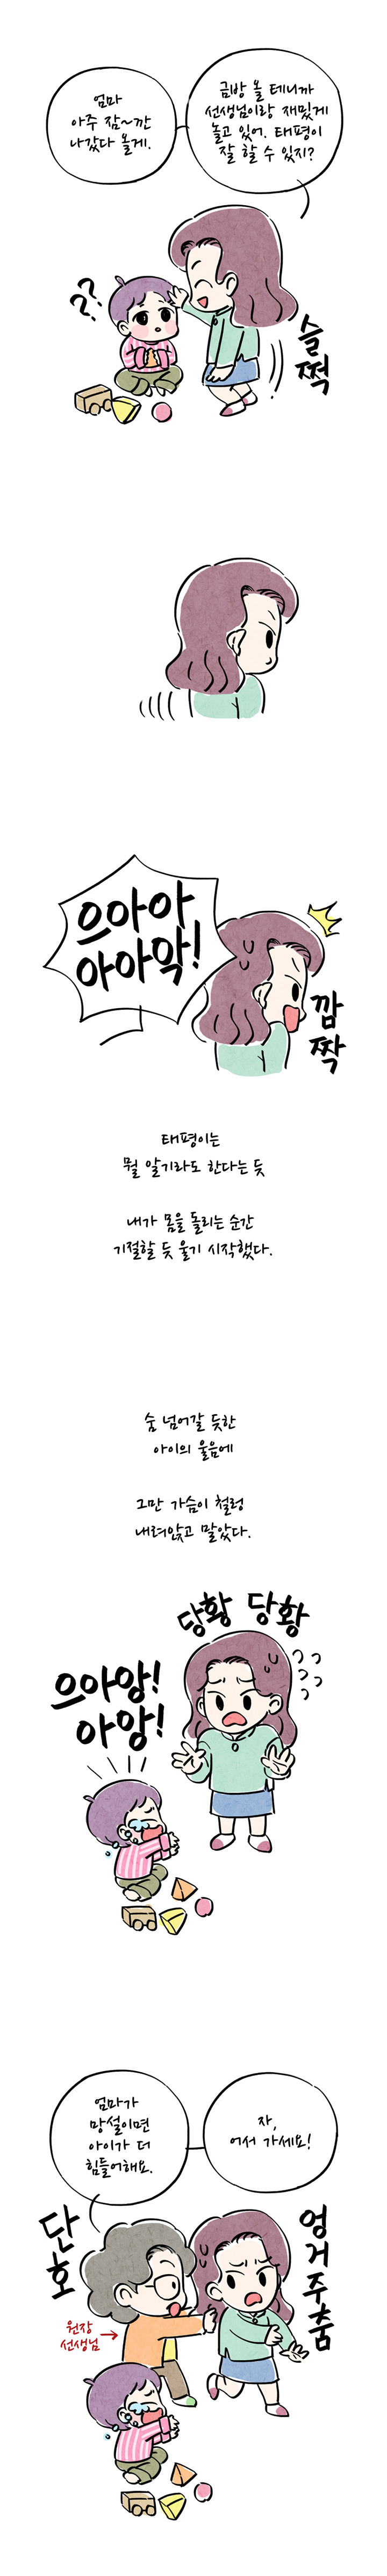 엄마
아주 잠~깐
나갔다 올게.
금방 올 테니까
선생님이랑 재밌게
놀고 있어. 태평이
잘 할 수 있지?
??
슬
쩍
으아아
아아악!
깜
짝
태평이는
뭘 알기라도 한다는 듯
내가 몸을 돌리는 순간
기절할 듯 울기 시작했다.
숨 넘어갈 듯한
아이의 울음에
그만 가슴이 철렁
내려앉고 말았다.
당황 당황
으아앙!
아앙!
엄마가
망설이면
아이가 더
힘들어해요.
자,
어서 가세요!
단
호
엉
거
주
춤
원장
선생님